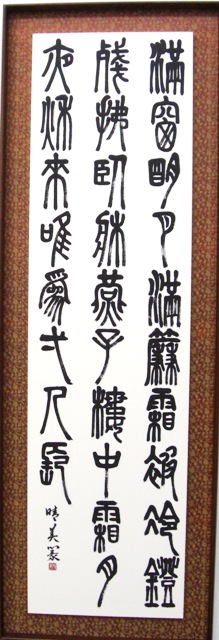 滿窗明月滿簾霜被冷鐙
殘拂臥牀燕子樓中霜月
夜秋來唯爲弌人長
晴美篆